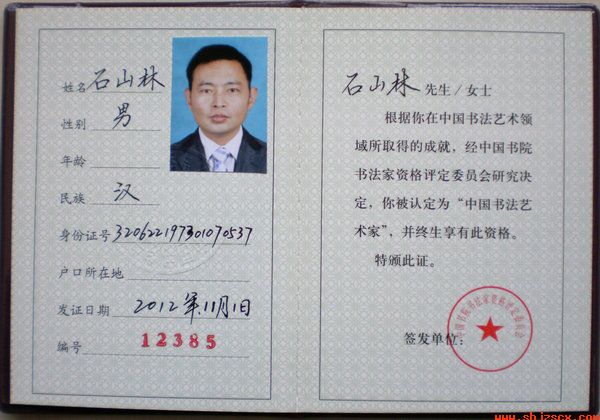 姓名 石山林
性别 男
年龄
民族 汉
身份证号 320622197301070537
户口所在地
发证日期 2012年11月1日
编号 12385
石山林 先生/女士
根据你在中国书法艺术领
域所取得的成就，经中国书院
书法家资格评定委员会研究决
定，你被认定为“中国书法艺
术家”，并终生享有此资格。
特颁此证。
签发单位：
中国书院书法家资格评定委员会
www.shjzscx.com